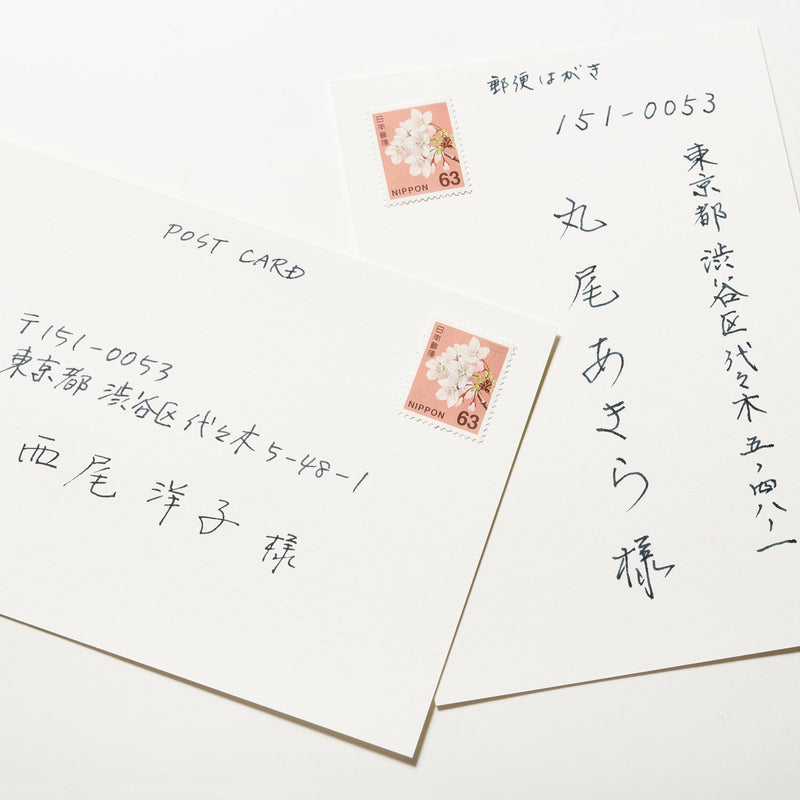 POST CARD
日本郵便
NIPPON 63
〒151-0053
東京都 渋谷区 代々木 5-48-1
西尾 洋子 様
郵便はがき
日本郵便
NIPPON 63
151-0053
東京都 渋谷区 代々木 五ノ四八ノ一
丸尾あきら様